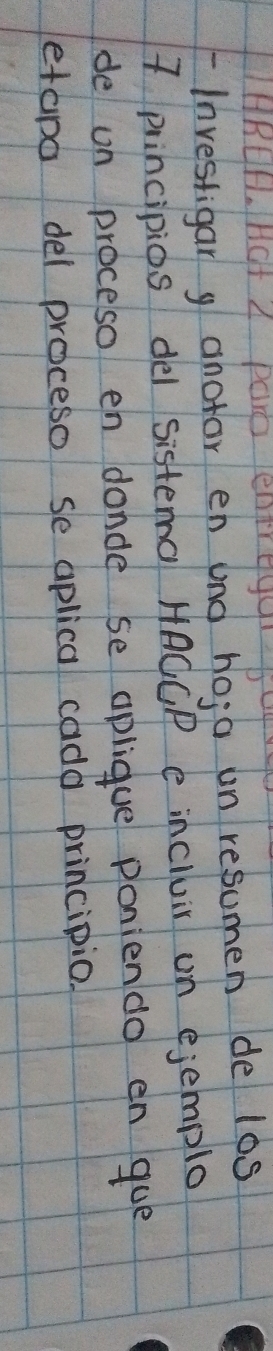 TAREA. Act 2 para entregar
- Investigar y anotar en una hoja un resumen de los
7 principios del sistema HACCP e incluir un ejemplo
de un proceso en donde se aplique poniendo en que
etapa del proceso se aplica cada principio.